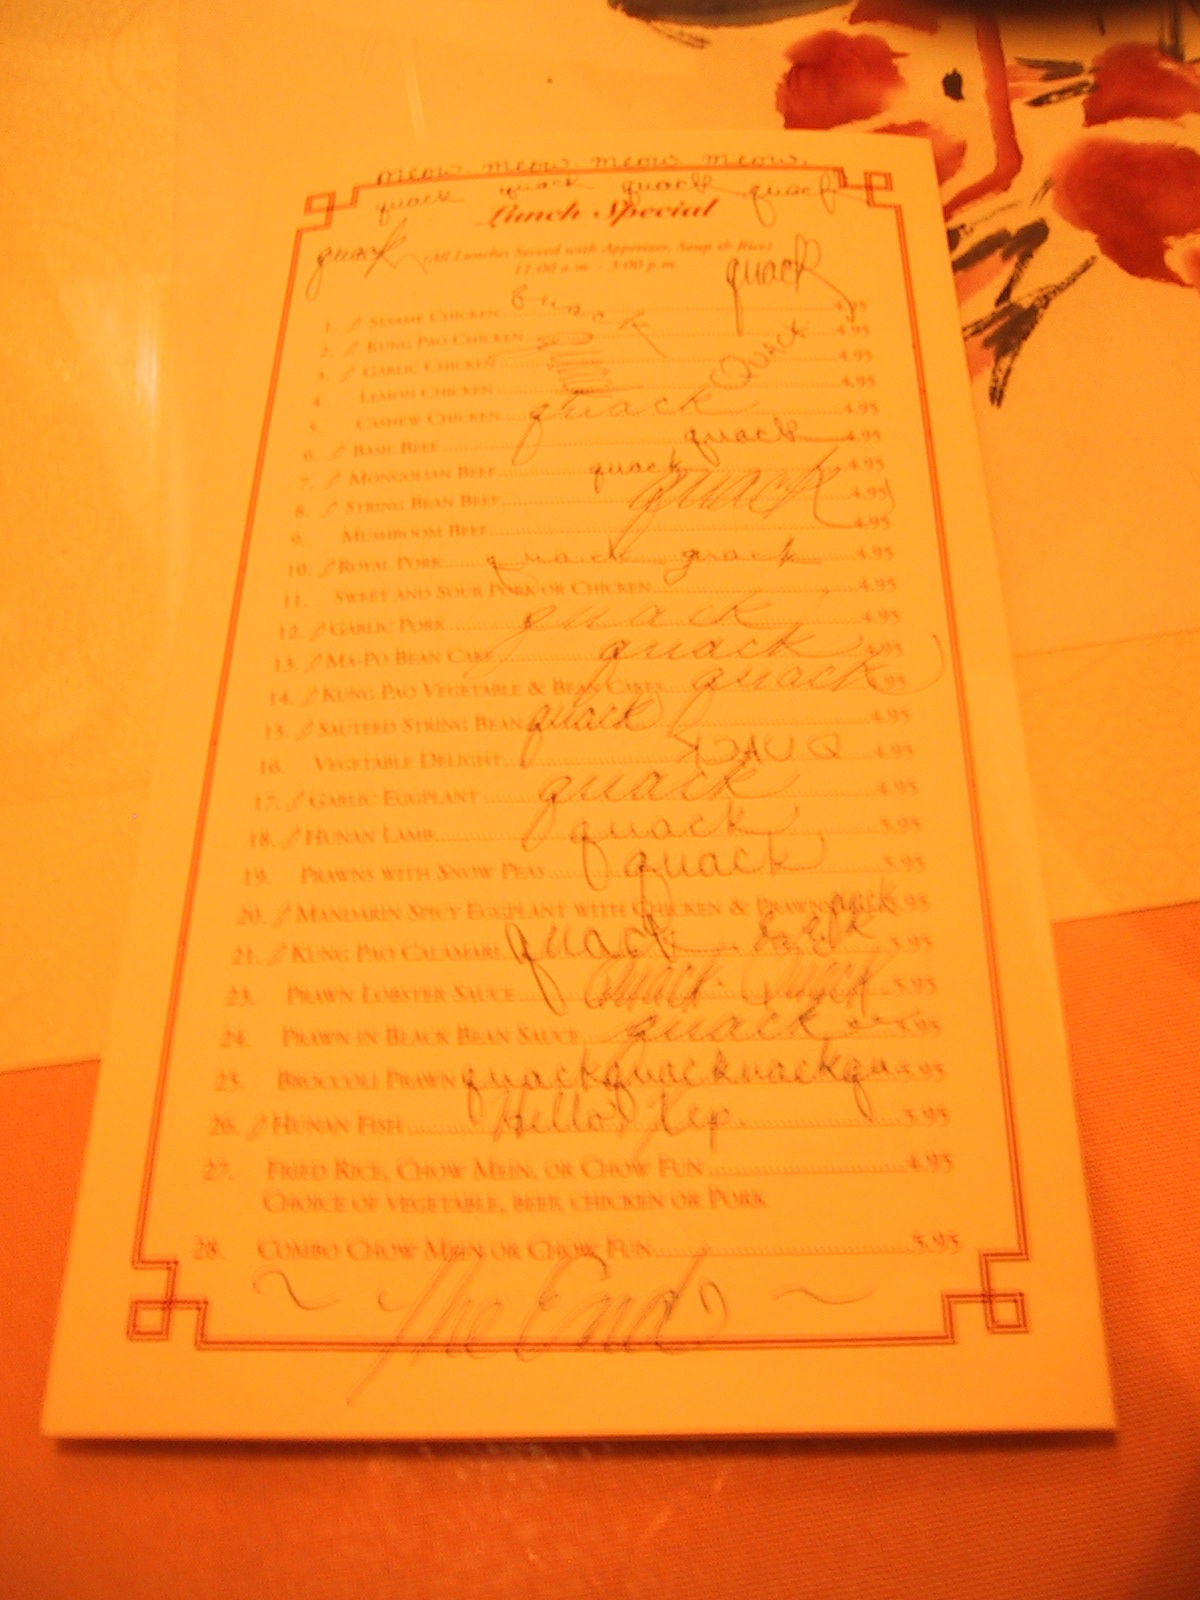 meow meow meow meow
quack quack quack quack
Lunch Special
quack (All Lunches Served with Appetizer, Soup & Rice)
11:00 a.m. - 3:00 p.m. quack
1. SESAME CHICKEN 4.95
2. KUNG PAO CHICKEN 4.95
3. GARLIC CHICKEN QUACK 4.95
4. LEMON CHICKEN 4.95
5. CASHEW CHICKEN quack 4.95
6. BASIL BEEF quack 4.95
7. MONGOLIAN BEEF quack 4.95
8. STRING BEAN BEEF quack 4.95
9. MUSHROOM BEEF 4.95
10. ROYAL PORK quack quack 4.95
11. SWEET AND SOUR PORK OR CHICKEN 4.95
12. GARLIC PORK quack 4.95
13. MA-PO BEAN CAKE quack 4.95
14. KUNG PAO VEGETABLE & BEAN CAKES quack 4.95
15. SAUTEED STRING BEAN quack 4.95
16. VEGETABLE DELIGHT 4.95
17. GARLIC EGGPLANT quack 4.95
18. HUNAN LAMB quack 5.95
19. PRAWNS WITH SNOW PEAS quack 5.95
20. MANDARIN SPICY EGGPLANT WITH CHICKEN & PRAWNS quack 5.95
21. KUNG PAO CALAMARI quack 5.95
23. PRAWN LOBSTER SAUCE Quack Quack 5.95
24. PRAWN IN BLACK BEAN SAUCE quack 5.95
25. BROCCOLI PRAWN quackquackuackqu 5.95
26. HUNAN FISH Hello 5.95
27. FRIED RICE, CHOW MEIN, OR CHOW FUN 4.95
CHOICE OF VEGETABLE, BEEF, CHICKEN OR PORK
28. COMBO CHOW MEIN OR CHOW FUN 5.95
~ The End ~